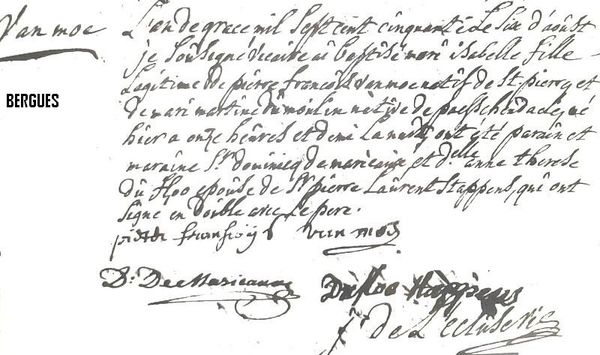 Van moe
BERGUES
L'an de grace mil sept cent cinquante le six d'aoust
je soussigné vicaire ai baptisé mari isabelle fille
Legitime de pierre francois van moe natif de St pierre et
de mari martine du moulin native de passchendacle, né
hier a onze heures et demi la nuit, ont été parain et
maraine Sr. dominicq demaricaux et d.elle anne therese
du floo epouse de Sr pierre Laurent stappens, qui ont
signé en double avec le pere.
pieter franssoijs van moe
D: De Maricaux
Du floo stappens
j de L'ecluse vic